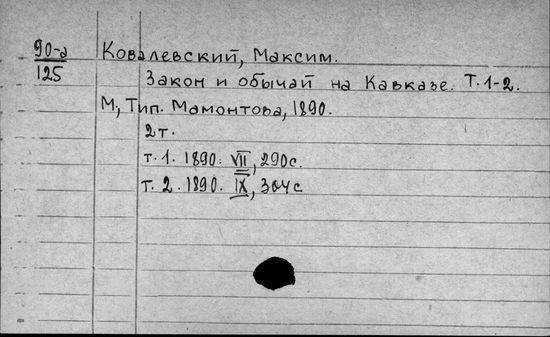 90-а Ковалевский, Максим.
125 Закон и обычай на Кавказе. Т. 1-2.
М., Тип. Мамонтова, 1890.
2 т.
т. 1. 1890. VII, 290 с.
т. 2. 1890. IX, 304 с